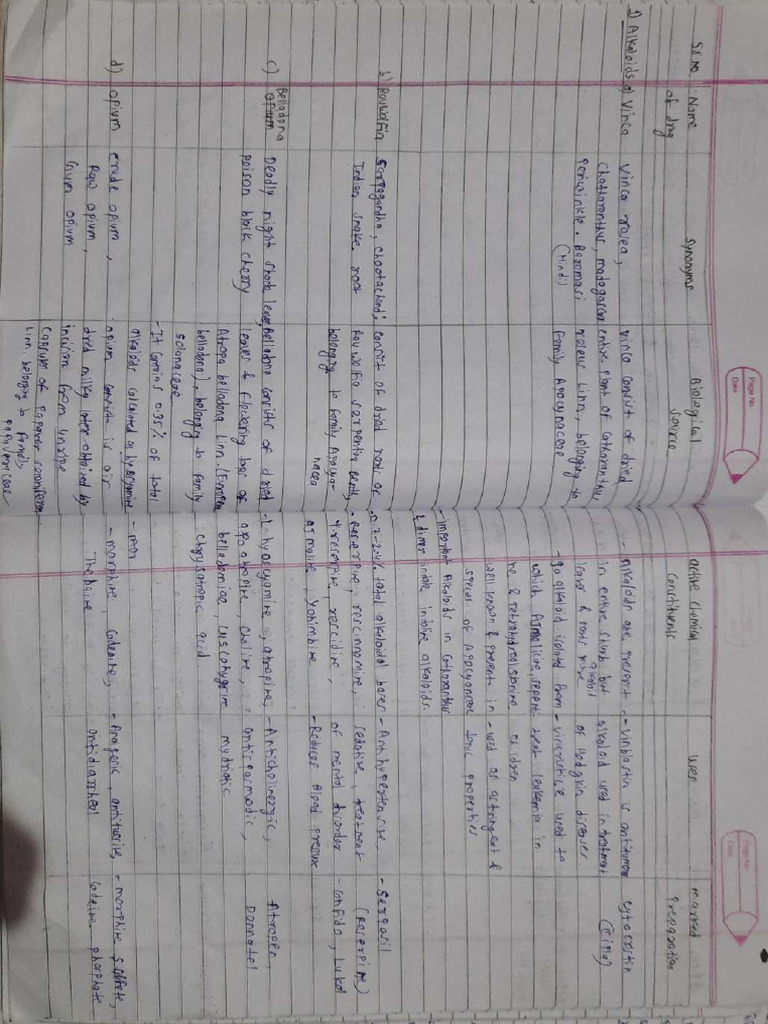 Page No.
Date
Sr. no.
Name of drug
Synonyms
Biological source
active chemical constituents
uses
marked preparation
1) Alkaloids
a) Vinca
Vinca rosea,
Chatharanthus, madagascar
periwinkle. Baramasi
(Hindi)
Vinca consist of dried
entire plant of Catharanthus
roseus Linn, belonging to
family Apocynaceae
- Alkaloids are present
in entire shrub but
leaves & roots more
alkaloid
- 90 alkaloid isolated from
which Ajmalicine, serpenti
ne & tetrahydroalstonine
well known & present in
species of Apocynaceae
- important Alkaloids in catharanthus
& dimer indole indoline alkaloids.
- vinblastin is antitumor
alkaloid used in treatment
of Hodgkin diseases
- vincristice used to
treat leukemia in
children
- used as astringent &
tonic properties
cytocristin
(Cipla)
b) Rauwolfia
Sarpagandha, Chootachand,
Indian snake root
consist of dried root of
Rauwolfia serpentina benth,
belonging to family Apocya-
nacea
0.7-2.4% total alkaloidal bases
- Reserpine, rescinnamine,
ajmaline, Yohimbine
- Antihypertensive,
sedative, treatment
of mental disorder
- Reduces Blood pressure
- Serpasil
(Reserpine)
- Confido, Lukol
c) opium
Belladona
Deadly night shade leaves,
poison black cherry
Belladona consists of dried
leaves & flowering tops of
Atropa belladona Linn.
belladona), belonging to family
solanaceae
- It contains 0.35% of total
alkaloids calculated as hyoscyamine
- L-hyoscyamine, atropine,
apoatropine, choline,
belladonine, cuscohygrine
chrysatropic acid
- Anticholinergic,
antispasmodic,
mydriatic
Atropen,
Donnatel
d) opium
crude opium,
Raw opium,
Gum opium
- opium consist is air
dried milky latex obtained by
incision from unripe
capsules of papaver somniferum
Linn, belonging to family
papaveraceae
- morphine, codeine,
Thebaine
- Anagesic, antitussive,
antidiarrheal
- morphine sulfate,
codeine phosphate